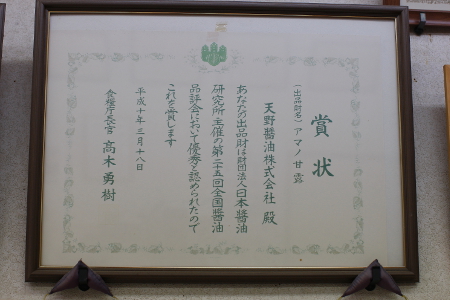 賞状
（出品財名）アマノ甘露
天野醬油株式会社殿
あなたの出品財は財団法人日本醬油
研究所主催の第二十五回全国醬油
品評会において優秀と認められたので
これを賞します
平成十年三月十八日
食糧庁長官 高木勇樹